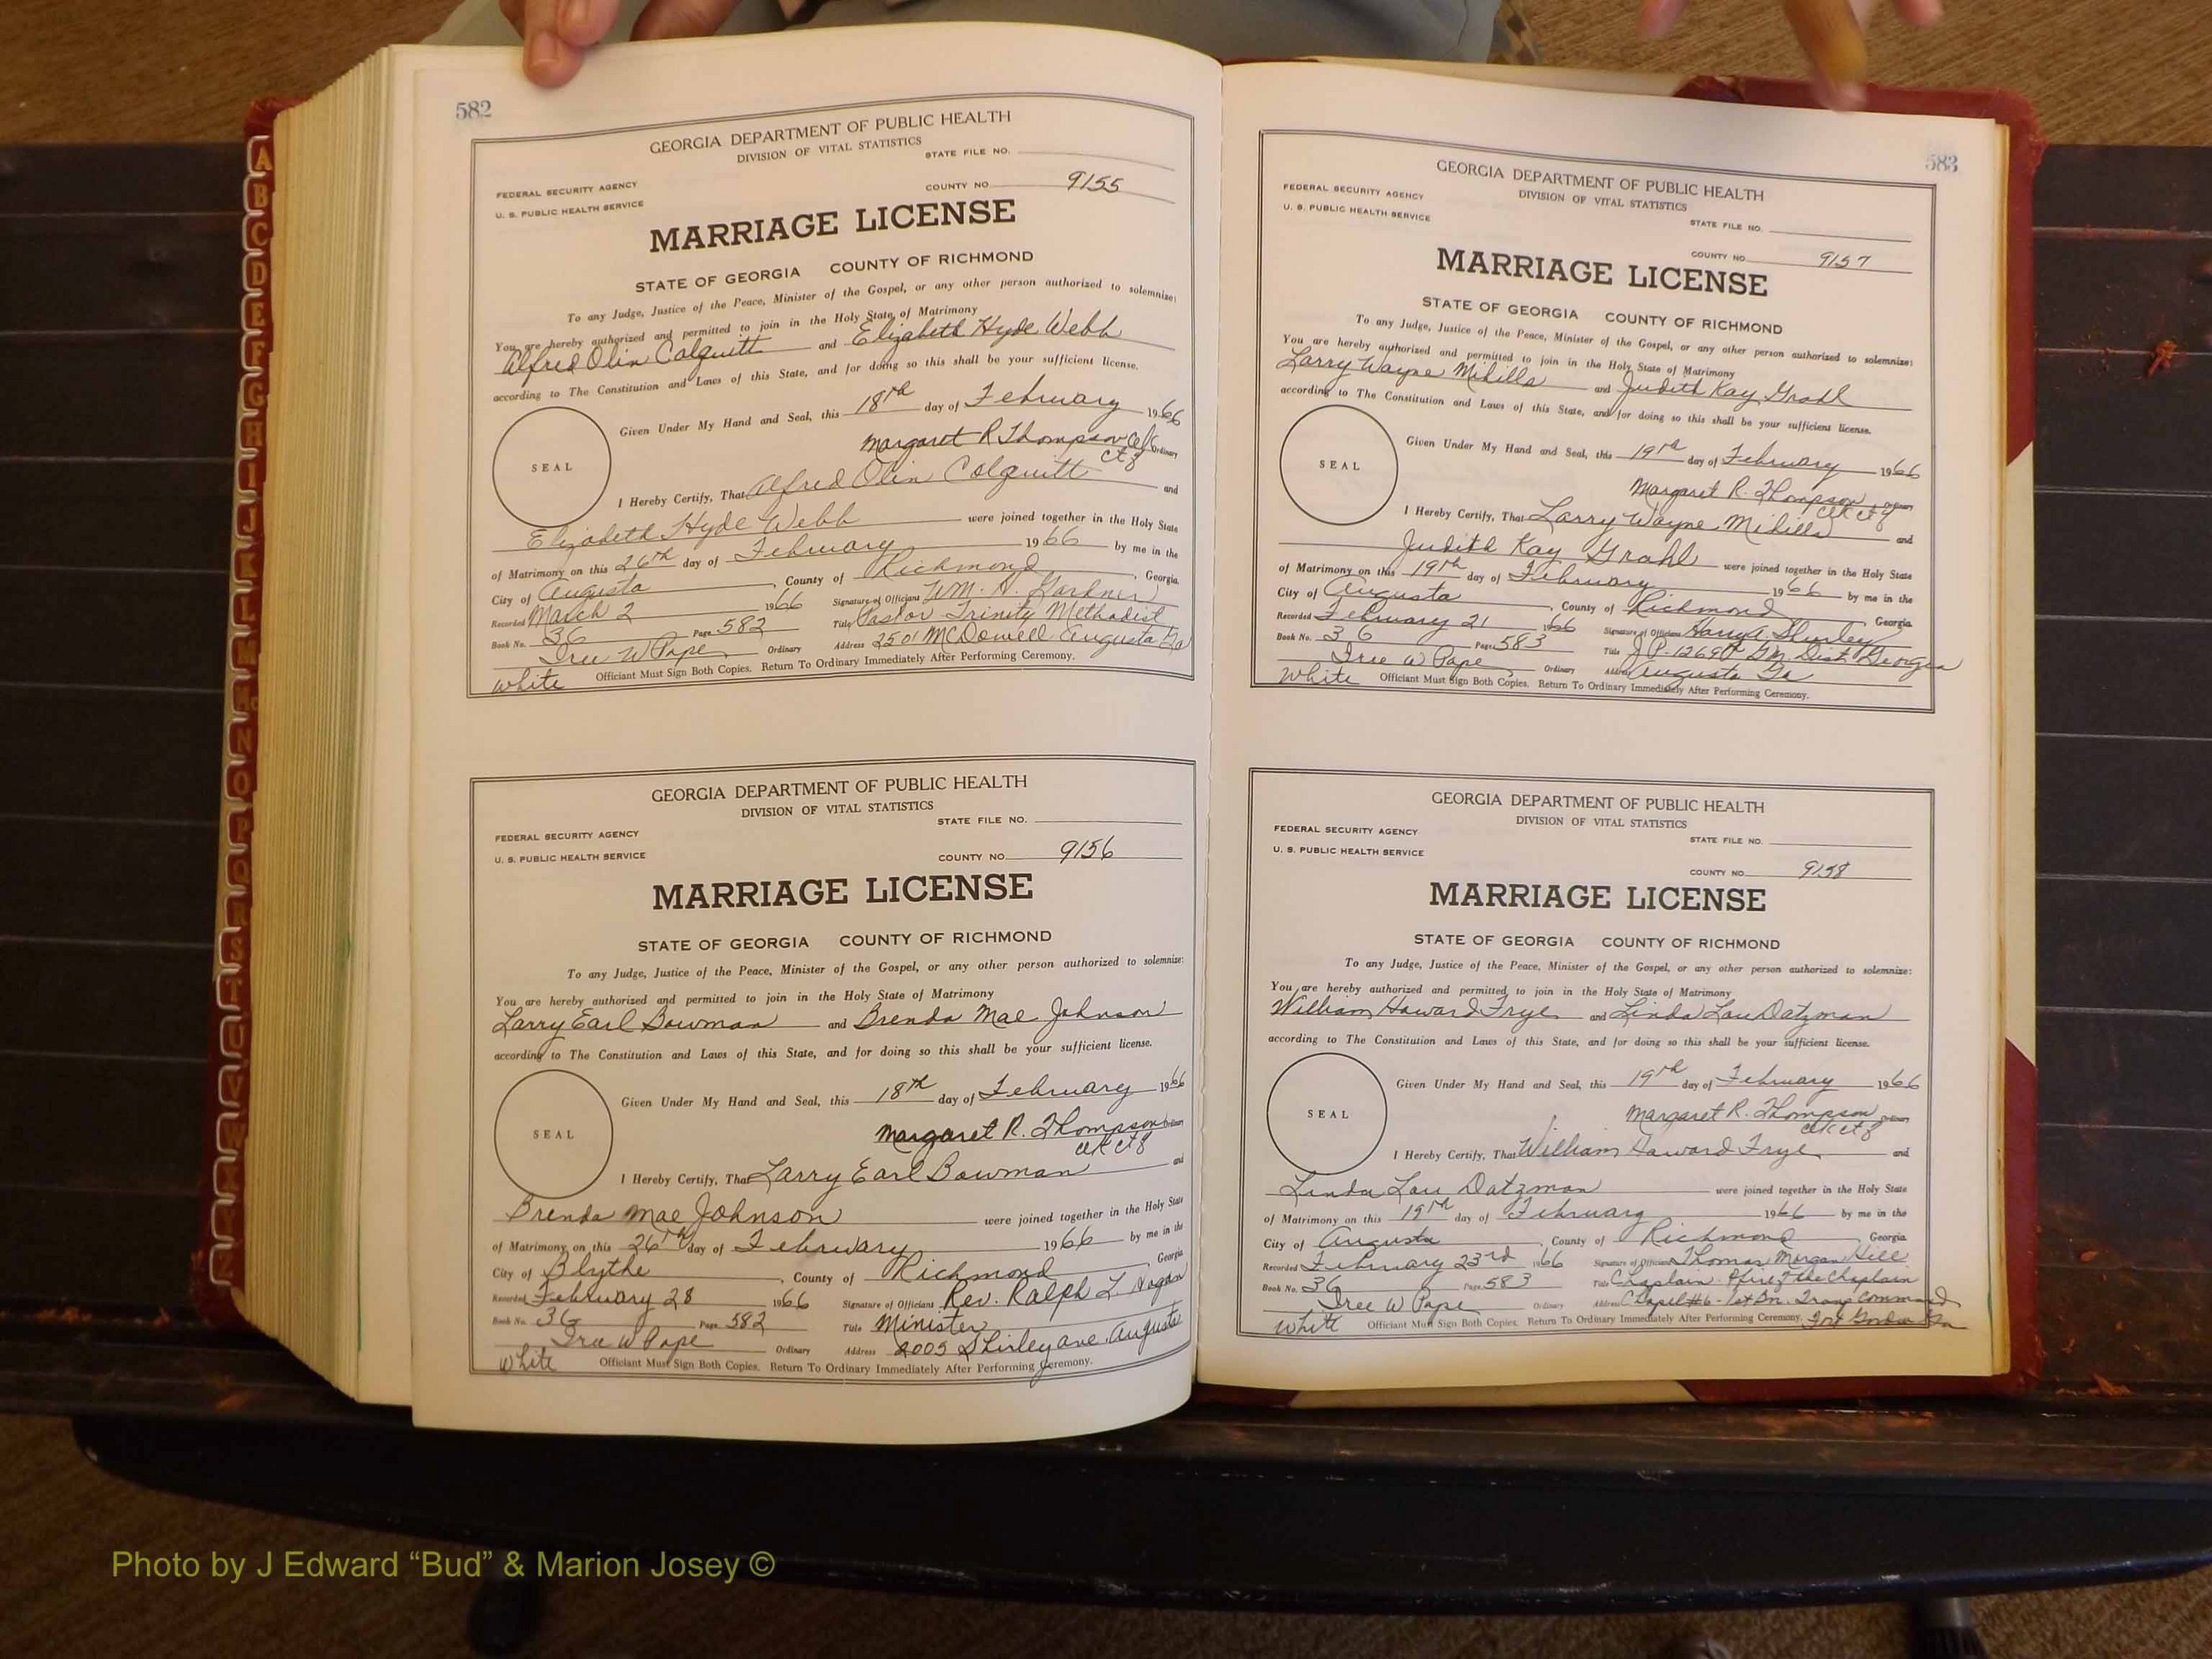 582
GEORGIA DEPARTMENT OF PUBLIC HEALTH
DIVISION OF VITAL STATISTICS
STATE FILE NO.
FEDERAL SECURITY AGENCY
U. S. PUBLIC HEALTH SERVICE
COUNTY NO. 9155
MARRIAGE LICENSE
STATE OF GEORGIA COUNTY OF RICHMOND
To any Judge, Justice of the Peace, Minister of the Gospel, or any other person authorized to solemnize:
You are hereby authorized and permitted to join in the Holy State of Matrimony
Alfred Olin Colquitt and Elizabeth Hyde Webb
according to The Constitution and Laws of this State, and for doing so this shall be your sufficient license.
Given Under My Hand and Seal, this 18th day of February 1966
SEAL
Margaret R Thompson Ordinary
I Hereby Certify, That Alfred Olin Colquitt and
Elizabeth Hyde Webb were joined together in the Holy State
of Matrimony on this 26th day of February 1966 by me in the
City of Augusta, County of Richmond, Georgia.
Recorded March 2 1966 Signature of Officiant WM. H. Gardner
Book No. 36 Page 582 Title Pastor Trinity Methodist
Iree W Pape Ordinary Address 2501 McDowell Augusta Ga
white Officiant Must Sign Both Copies. Return To Ordinary Immediately After Performing Ceremony.
GEORGIA DEPARTMENT OF PUBLIC HEALTH
DIVISION OF VITAL STATISTICS
STATE FILE NO.
FEDERAL SECURITY AGENCY
U. S. PUBLIC HEALTH SERVICE
COUNTY NO. 9156
MARRIAGE LICENSE
STATE OF GEORGIA COUNTY OF RICHMOND
To any Judge, Justice of the Peace, Minister of the Gospel, or any other person authorized to solemnize:
You are hereby authorized and permitted to join in the Holy State of Matrimony
Larry Earl Bowman and Brenda Mae Johnson
according to The Constitution and Laws of this State, and for doing so this shall be your sufficient license.
Given Under My Hand and Seal, this 18th day of February 1966
SEAL
Margaret R. Thompson Ordinary
I Hereby Certify, That Larry Earl Bowman and
Brenda Mae Johnson were joined together in the Holy State
of Matrimony on this 26th day of February 1966 by me in the
City of Blythe, County of Richmond Georgia
Recorded February 28 1966 Signature of Officiant Rev. Ralph L. Hogan
Book No. 36 Page 582 Title Minister
Iree W Pape Ordinary Address 2005 Shirley ave. Augusta
white Officiant Must Sign Both Copies. Return To Ordinary Immediately After Performing Ceremony.
583
GEORGIA DEPARTMENT OF PUBLIC HEALTH
DIVISION OF VITAL STATISTICS
FEDERAL SECURITY AGENCY
U. S. PUBLIC HEALTH SERVICE
STATE FILE NO.
COUNTY NO. 9157
MARRIAGE LICENSE
STATE OF GEORGIA COUNTY OF RICHMOND
To any Judge, Justice of the Peace, Minister of the Gospel, or any other person authorized to solemnize:
You are hereby authorized and permitted to join in the Holy State of Matrimony
Larry Wayne Mihills and Judith Kay Grahl
according to The Constitution and Laws of this State, and for doing so this shall be your sufficient license.
Given Under My Hand and Seal, this 19th day of February 1966
SEAL
Margaret R. Thompson Ordinary
I Hereby Certify, That Larry Wayne Mihills and
Judith Kay Grahl were joined together in the Holy State
of Matrimony on this 19th day of February 1966 by me in the
City of Augusta, County of Richmond Georgia
Recorded February 21 1966 Signature of Officiant Harry A. Shurley
Book No. 36 Page 583 Title J P. 1269th GM Dist. Georgia
Iree W Pape Ordinary Address Augusta Ga
white Officiant Must Sign Both Copies. Return To Ordinary Immediately After Performing Ceremony.
GEORGIA DEPARTMENT OF PUBLIC HEALTH
DIVISION OF VITAL STATISTICS
FEDERAL SECURITY AGENCY
U. S. PUBLIC HEALTH SERVICE
STATE FILE NO.
COUNTY NO. 9158
MARRIAGE LICENSE
STATE OF GEORGIA COUNTY OF RICHMOND
To any Judge, Justice of the Peace, Minister of the Gospel, or any other person authorized to solemnize:
You are hereby authorized and permitted to join in the Holy State of Matrimony
William Howard Frye and Linda Lou Datzman
according to The Constitution and Laws of this State, and for doing so this shall be your sufficient license.
Given Under My Hand and Seal, this 19th day of February 1966
SEAL
Margaret R. Thompson Ordinary
I Hereby Certify, That William Howard Frye and
Linda Lou Datzman were joined together in the Holy State
of Matrimony on this 19th day of February 1966 by me in the
City of Augusta, County of Richmond, Georgia
Recorded February 23rd 1966 Signature of Officiant Thomas Morgan Hill
Book No. 36 Page 583 Title Chaplain. of the Chaplain
Iree W Pape Ordinary Address Chapel #6 - 1st Bn. Troop Command
white Officiant Must Sign Both Copies. Return To Ordinary Immediately After Performing Ceremony. Fort Gordon Ga
A
B
C
D
E
F
G
H
I
J
K
L
M
Mc
N
O
P
Q
R
S
T
U
V
W
Photo by J Edward “Bud” & Marion Josey ©